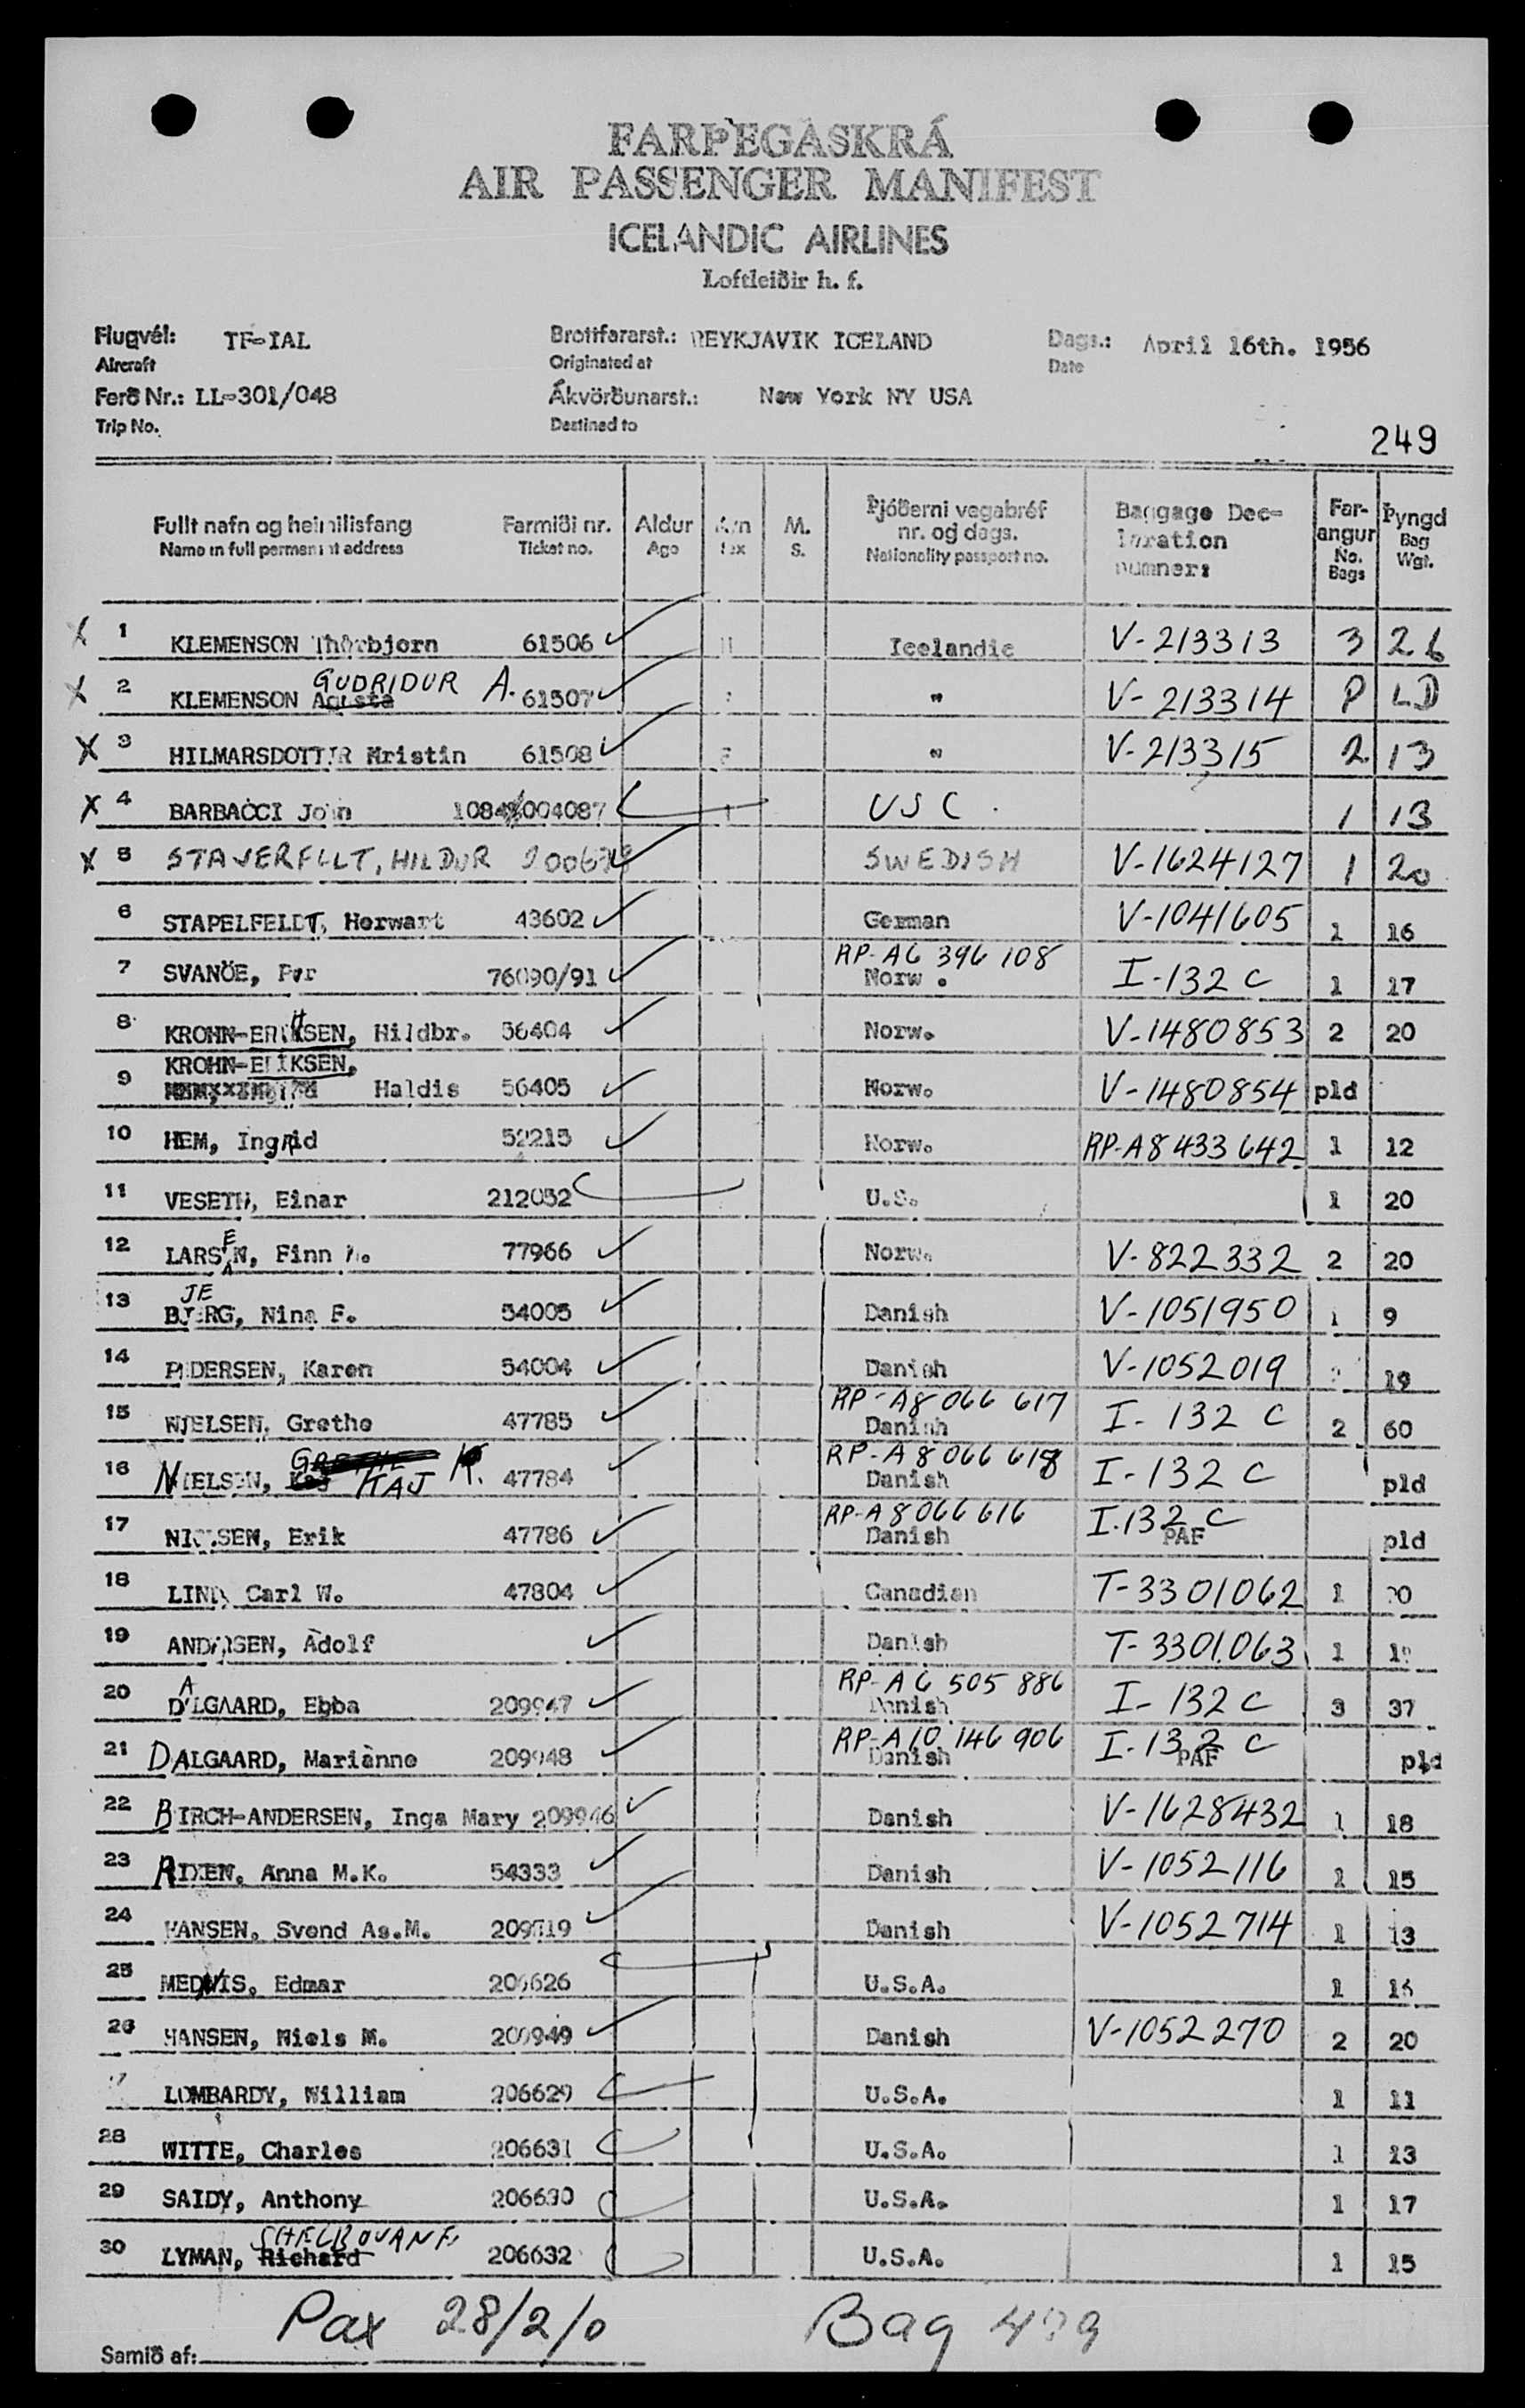 FARÞEGASKRÁ
AIR PASSENGER MANIFEST
ICELANDIC AIRLINES
Loftleiðir h. f.
Flugvél: TF-IAL Brottfararst.: REYKJAVIK ICELAND Dags.: April 16th. 1956
Aircraft Originated at Date
Ferð Nr.: LL-301/048 Ákvörðunarst.: New York NY USA
Trip No. Destined to
249
Fullt nafn og heimilisfang Farmiði nr. Aldur Kyn M. Þjóðerni vegabréf nr. og dags. Baggage Dec- Far- Þyngd
Name in full permanent address Ticket no. Age Sex S. Nationality passport no. laration numner: angur No. Bags Bag Wgt.
X 1 KLEMENSON Thorbjorn 61506 Icelandic V-213313 3 26
X 2 KLEMENSON Agusta GUDRIDUR A. 61507 " V-213314 P LD
X 3 HILMARSDOTTIR Kristin 61508 F " V-213315 2 13
X 4 BARBACCI John 004087 USC 1 13
X 5 HILDUR SWEDISH V-1624127 1 20
6 STAPELFELDT, Herwart 43602 German V-1041605 1 16
RP-A6 396 108
7 SVANÖE, Per 76090/91 Norw. I-132 C 1 17
8 KROHN-ERIKSEN, Hildbr. 56404 Norw. V-1480853 2 20
KROHN-ERIKSEN,
9 Haldis 56405 Norw. V-1480854 pld
10 HEM, Ingrid 52215 Norw. RP-A8 433 642 1 12
11 VESETH, Einar 212052 U.S. 1 20
12 LARSEN, Finn 77966 Norw. V-822332 2 20
13 BJERG, Nina F. JE 54005 Danish V-1051950 1 9
14 PEDERSEN, Karen 54004 Danish V-1052019 19
RP-A8 066 617
15 NIELSEN, Grethe 47785 Danish I-132 C 2 60
GRETHE RP-A8 066 618
16 NIELSEN, Kaj KAJ K. 47784 Danish I-132 C pld
RP-A8 066 616
17 NIELSEN, Erik 47786 Danish I-132 C PAF pld
18 LIND, Carl W. 47804 Canadian T-3301062 1
19 ANDERSEN, Adolf Danish T-3301063 1
RP-A6 505 886
20 DALGAARD, Ebba 209947 Danish I-132 C 3 37
RP-A10 146 906
21 DALGAARD, Marianne 209948 Danish I-132 C PAF pld
22 BIRCH-ANDERSEN, Inga Mary 209946 Danish V-1628432 1 18
23 RIXEN, Anna M.K. 54333 Danish V-1052116 1 15
24 HANSEN, Svend Aa.M. Danish V-1052714 1 13
25 MEDNIS, Edmar 206626 U.S.A. 1
26 HANSEN, Niels M. 209949 Danish V-1052270 2 20
LOMBARDY, William 206629 U.S.A. 1 11
28 WITTE, Charles 206631 U.S.A. 1 13
29 SAIDY, Anthony 206630 U.S.A. 1 17
30 LYMAN, Richard 206632 U.S.A. 1 15
Pax 28/2/0 Bag
Samið af: